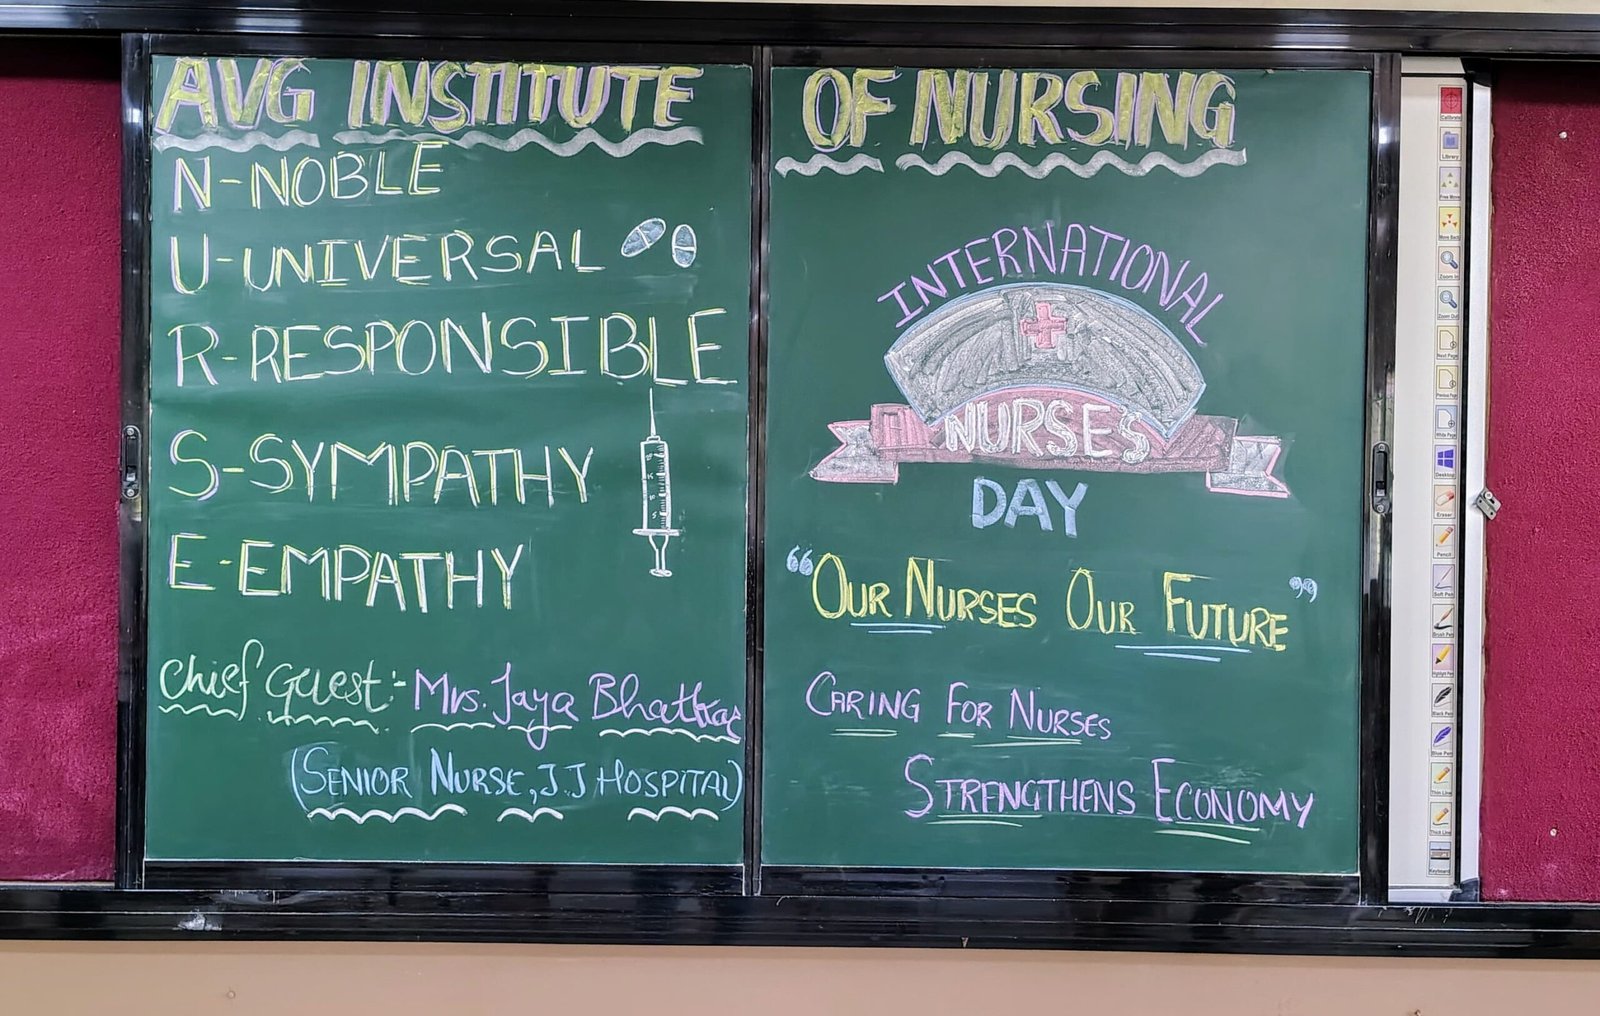 AVG INSTITUTE OF NURSING
N-NOBLE
U-UNIVERSAL
R-RESPONSIBLE
S-SYMPATHY
E-EMPATHY
Chief Guest:- Mrs. Jaya Bhatkar
(SENIOR NURSE, J.J HOSPITAL)
INTERNATIONAL
NURSES
DAY
"OUR NURSES OUR FUTURE"
CARING FOR NURSES
STRENGTHENS ECONOMY
Calibrate
Library
Free Move
Move Back
Zoom In
Zoom Out
Next Page
Previous Page
White Page
Desktop
Eraser
Pencil
Soft Pen
Brush Pen
Highlight Pen
Black Pen
Blue Pen
Thin Line
Thick Line
Keyboard